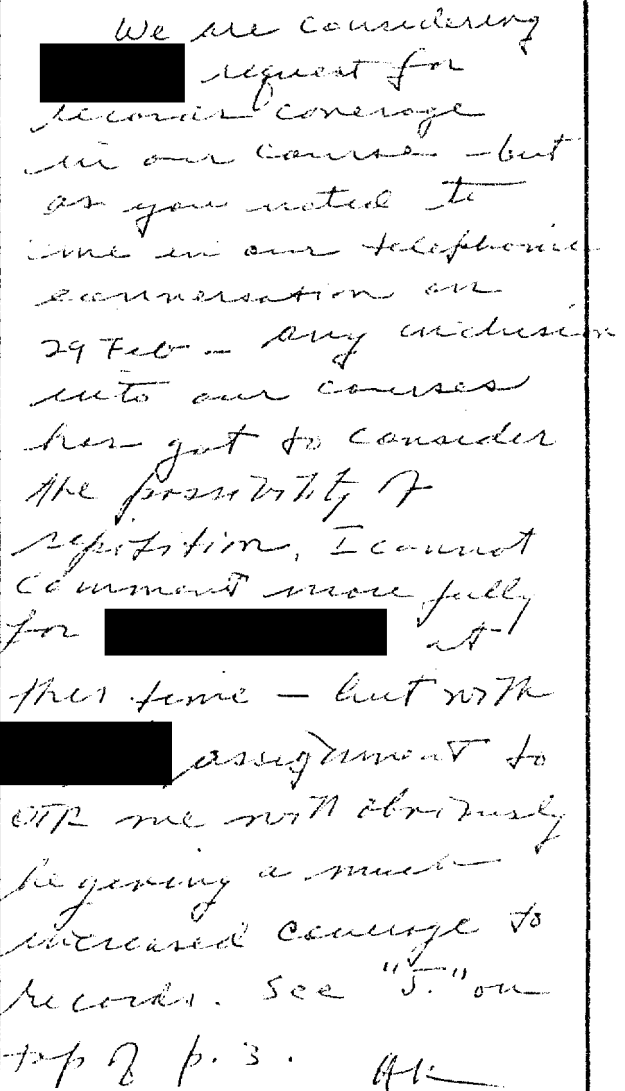 We are considering
request for
records coverage
in our course - but
as you noted to
me in our telephone
conversation on
29 Feb - any inclusion
into our courses
has got to consider
the possibility of
repetition. I cannot
comment more fully
for at
this time - but with
assignment to
OTR we will obviously
be giving a much
increased coverage to
records. See "5." on
top of p. 3.